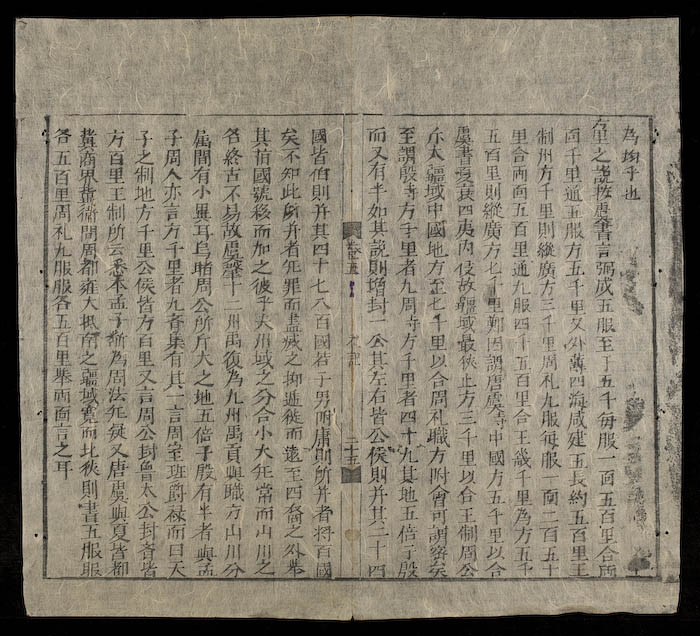 為均乎也
方里之說按虞書言弼成五服至于五千每服一面五百里合兩
面千里通五服方五千里又外薄四海咸建五長約五百里王
制州方千里則縱廣方三千里周礼九服每服一面二百五十
里合両面五百里通九服四千五百里合王畿千里為方五千
五百里則縱廣方七千里鄭因謂唐虞時中國方五千里以合
虞書夏衰四夷内侵故疆域最狹止方三千里以合王制周公
斥大疆域中國地方至七千里以合周礼職方附會可謂察矣
至謂殷時方千里者九周時方千里者四十九其地五倍于殷
而又有半如其說則增封一公其左右皆公侯則并其二十四
礼記 二十五
國皆伯則并其四十七八百國若子男附庸則所并者將百國
矣不知此所并者無罪而盡滅之抑遷徙而遠至四裔之外舉
其伯國號移而加之彼乎夫州域之分合小大無常而山川之
名終古不易故虞肇十二州禹復為九州禹貢與職方山川分
属間有小異耳烏睹周公所斥大之地五倍于殷有半者與孟
子周人亦言方千里者九齊集有其一言周室班爵祿而曰天
子之制地方千里公侯皆方百里又言周公封魯太公封齊皆
方百里王制所云悉本孟子斷為周法無疑又唐虞與夏皆都
冀商界冀衛間周都雍大抵南之疆域寬而北狹則書五服服
各五百里周礼九服服各五百里舉両面言之耳